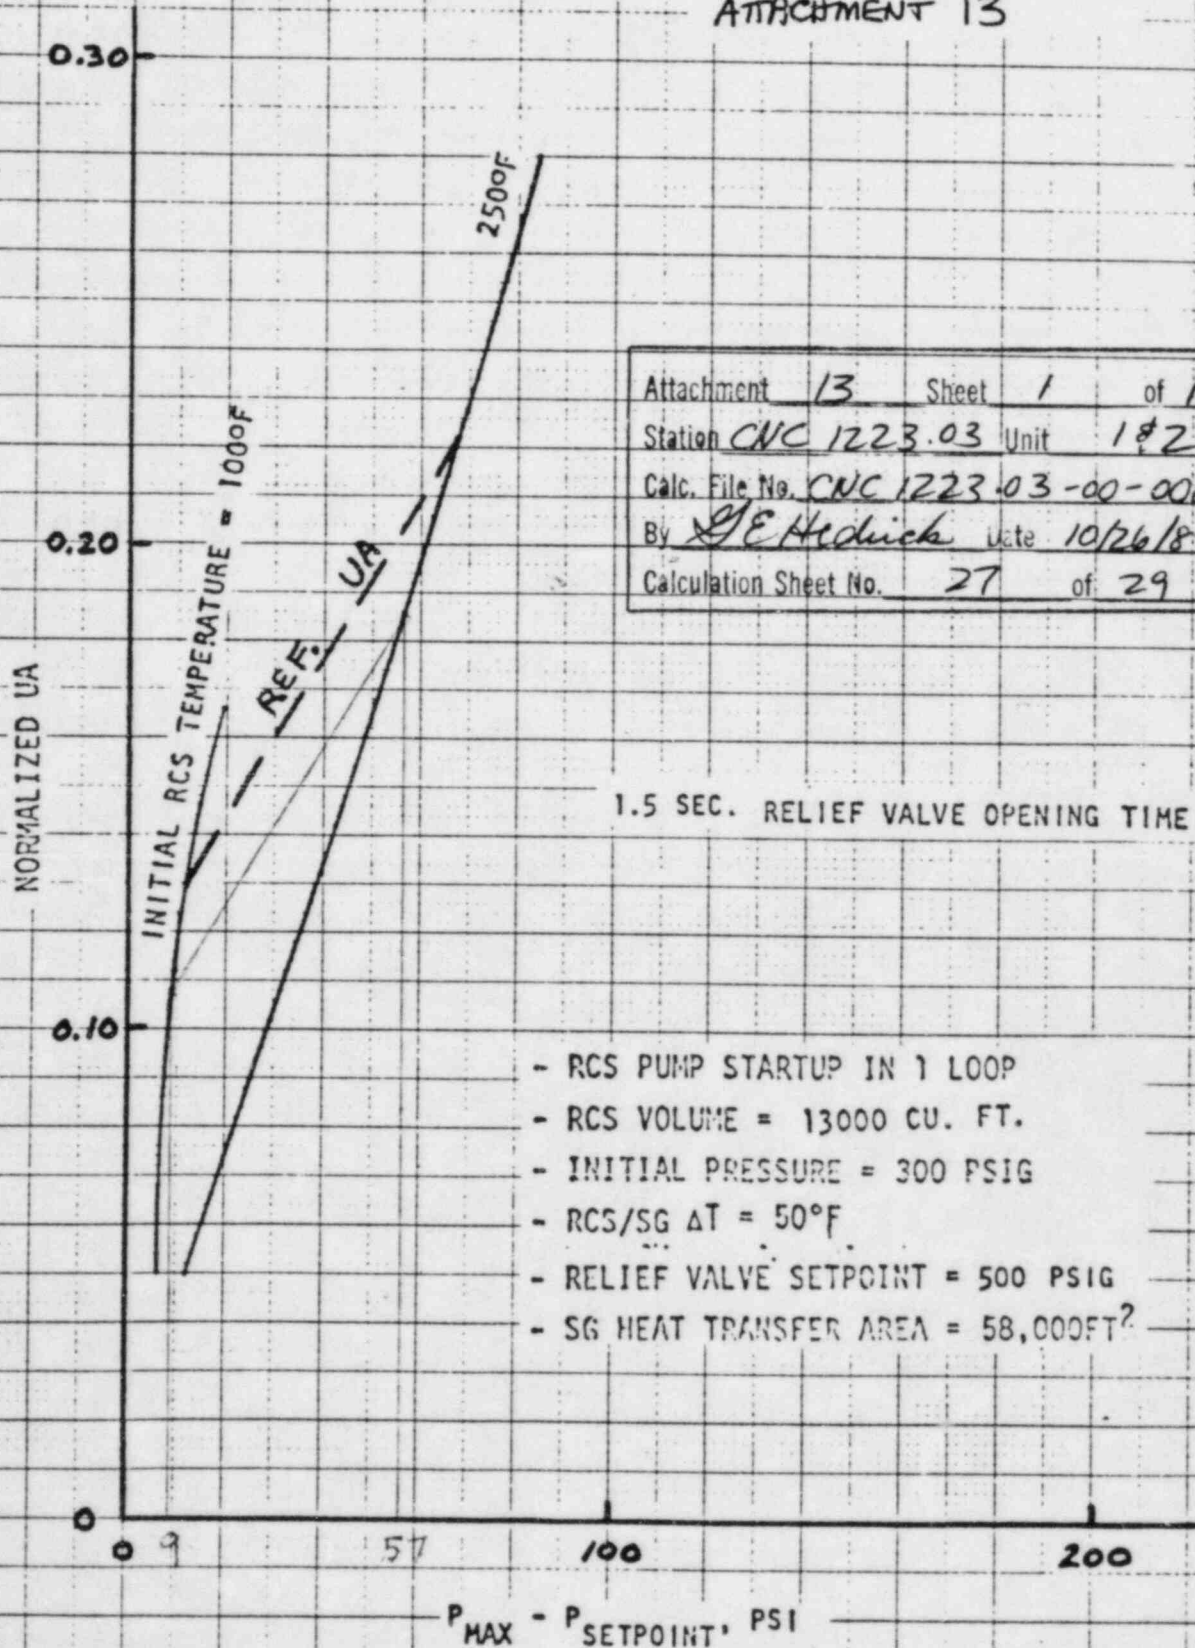 ATTACHMENT 13
0.30
250°F
INITIAL RCS TEMPERATURE = 100°F
Attachment 13 Sheet 1 of
Station CNC 1223.03 Unit 1&2
Calc. File No. CNC 1223.03-00-00
By G E Hedrick Date 10/26/8
Calculation Sheet No. 27 of 29
0.20
REF. UA
NORMALIZED UA
1.5 SEC. RELIEF VALVE OPENING TIME
0.10
- RCS PUMP STARTUP IN 1 LOOP
- RCS VOLUME = 13000 CU. FT.
- INITIAL PRESSURE = 300 PSIG
- RCS/SG ΔT = 50°F
- RELIEF VALVE SETPOINT = 500 PSIG
- SG HEAT TRANSFER AREA = 58,000FT²
0
0 9 57 100 200
PMAX - PSETPOINT, PSI